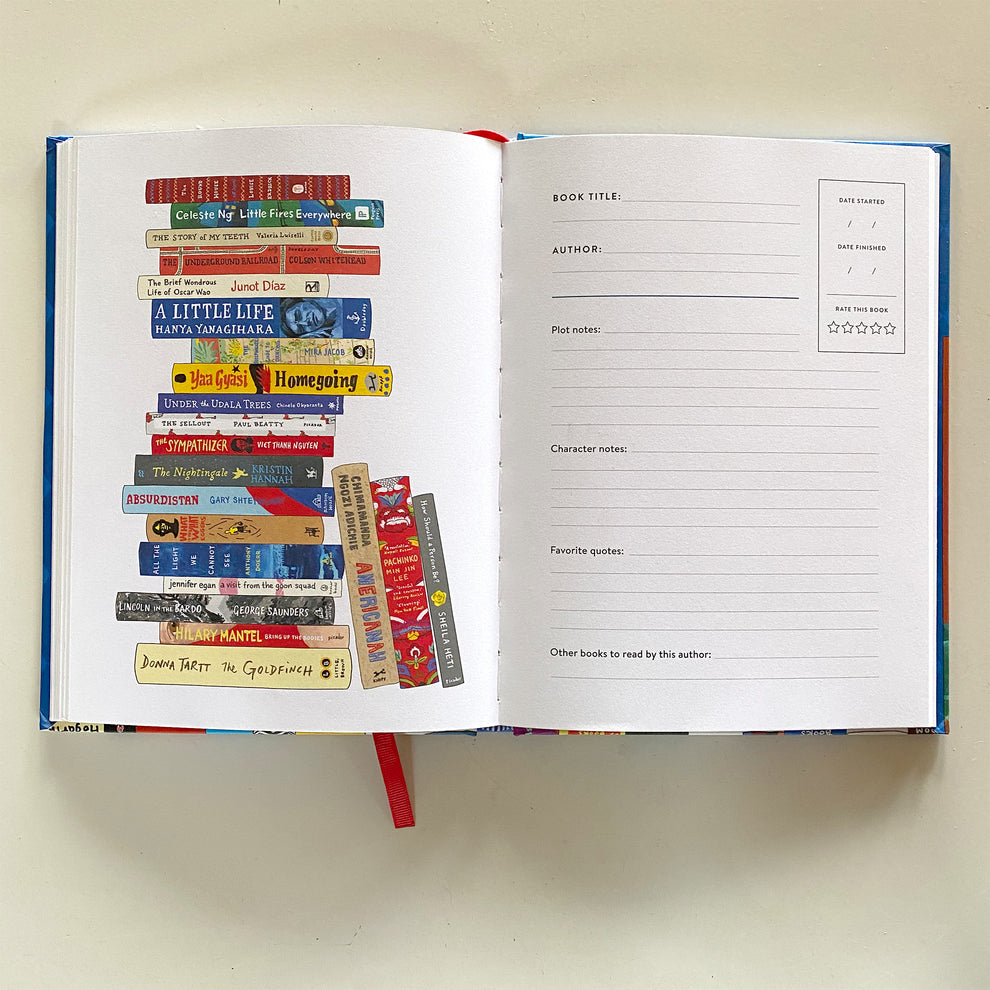 The Round House Louise Erdrich
Celeste Ng Little Fires Everywhere
THE STORY OF MY TEETH Valeria Luiselli
THE UNDERGROUND RAILROAD COLSON WHITEHEAD
DOUBLEDAY
The Brief Wondrous
Life of Oscar Wao
Junot Díaz
A LITTLE LIFE
HANYA YANAGIHARA
Doubleday
MIRA JACOB
Yaa Gyasi Homegoing
UNDER THE UDALA TREES Chinelo Okparanta
THE SELLOUT PAUL BEATTY PICADOR
THE SYMPATHIZER VIET THANH NGUYEN
The Nightingale KRISTIN
HANNAH
ABSURDISTAN GARY SHTE
RANDOM
HOUSE
WHAT
IS THE
WHAT
EGGERS
ALL THE LIGHT WE CANNOT SEE ANTHONY DOERR
jennifer egan a visit from the goon squad
LINCOLN IN THE BARDO GEORGE SAUNDERS
HILARY MANTEL BRING UP THE BODIES picador
DONNA TARTT The GOLDFINCH
LITTLE,
BROWN
CHIMAMANDA
NGOZI ADICHIE
AMERICANAH
PACHINKO
MIN JIN
LEE
How Should a Person Be? SHEILA HETI Picador
BOOK TITLE:
AUTHOR:
Plot notes:
Character notes:
Favorite quotes:
Other books to read by this author:
DATE STARTED
/ /
DATE FINISHED
/ /
RATE THIS BOOK
Hogarth
BOOKS
MOM